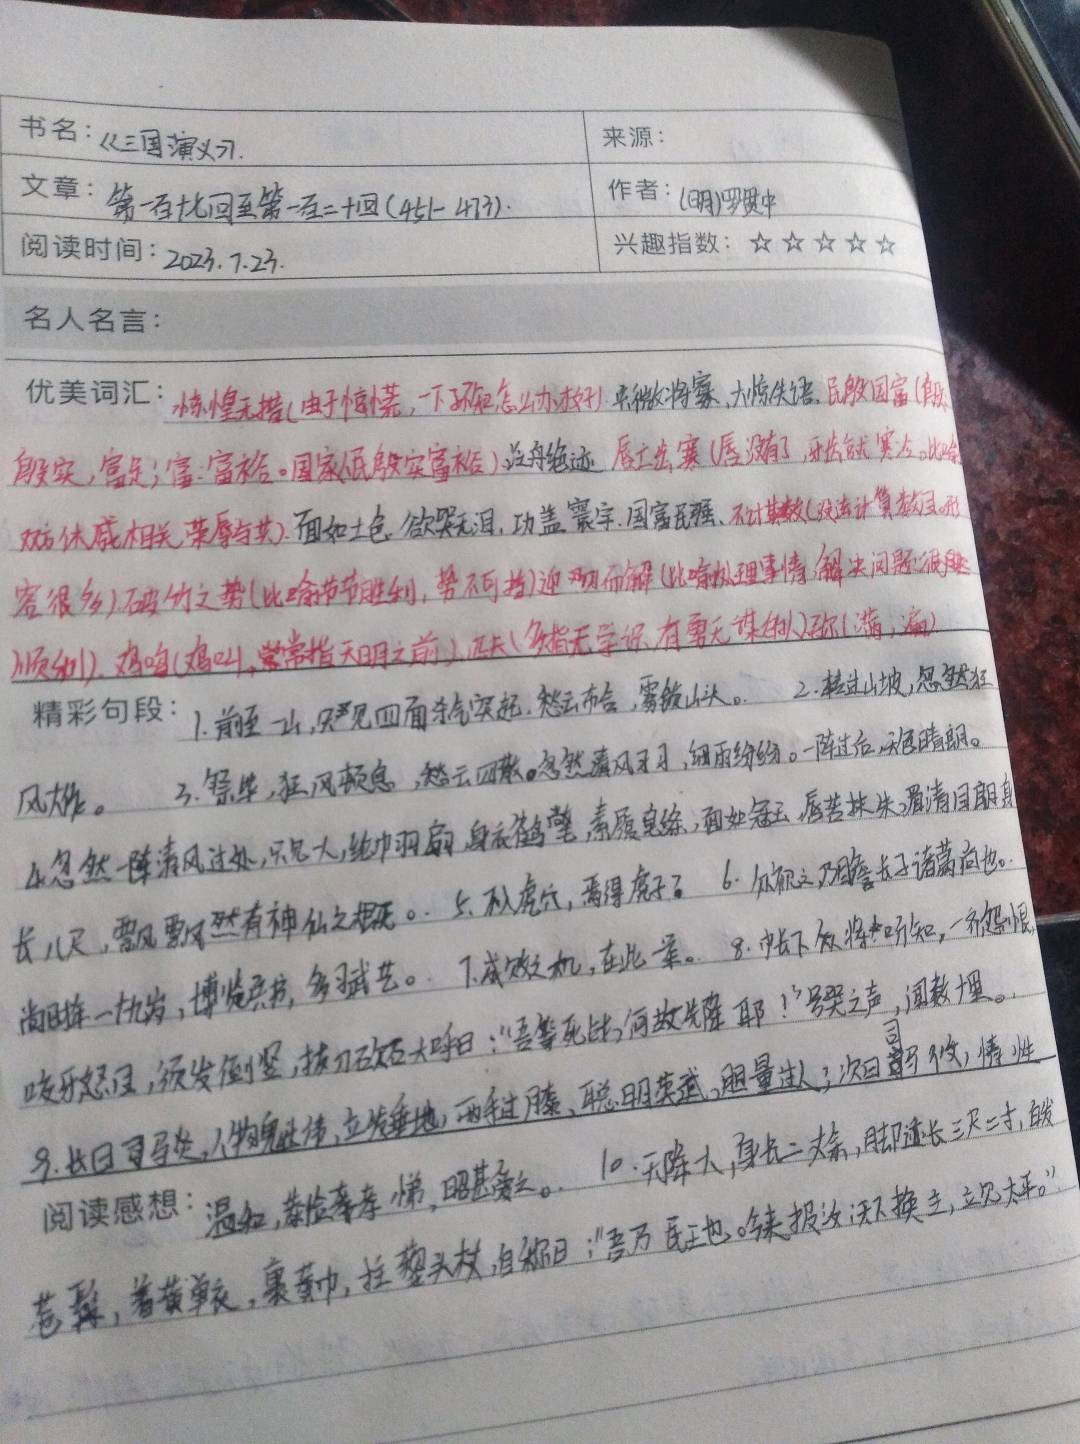 书名：《三国演义》.
来源：
文章：第一百十七回至第一百二十回(451-473).
作者：(明)罗贯中
阅读时间：2023.7.23.
兴趣指数：☆☆☆☆☆
名人名言：
优美词汇：惊惶无措(由于惊慌,一下不知怎么办才好).大惊失语.民殷国富(殷:
殷实,富足;富:富裕。国家人民殷实富裕).片舟绝迹.唇亡齿寒(唇没有了,牙齿就寒冷。比喻
双方休戚相关,荣辱与共).面如土色.欲哭无泪,功盖寰宇.国富民强.不计其数(没法计算数目.形
容很多).破竹之势(比喻节节胜利,势不可挡)迎刃而解(比喻处理事情、解决问题很
顺利).鸡鸣(鸡叫,常常指天明之前).(多指无学识、有勇无谋的人)弥(满,遍)
精彩句段：1.前至一山,只见四面杀气突起,愁云布合,雾锁山头。 2.转过山坡,忽然狂
风大作。 3.祭毕,狂风顿息,愁云四散。忽然清风习习,细雨纷纷。一阵过后,天色晴朗。
4.忽然一阵清风过处,只见一人,纶巾羽扇,身衣鹤氅,素履皂绦,面如冠玉,唇若抹朱,眉清目朗,身
长八尺,飘飘然有神仙之概。 5.不入虎穴,焉得虎子? 6.众视之,乃瞻长子诸葛尚也。
尚时年一十九岁,博览兵书,多习武艺。 7.成败之机,在此一举。 8.帐下众将听知,一齐怨恨,
咬牙怒目,须发倒竖,拔刀砍石大呼曰:“吾等死战,何故先降耶!”号哭之声,闻数里。
9.长曰司马炎,人物魁伟,立发垂地,两手过膝,聪明英武,胆量过人;次曰司马攸,情性
阅读感想：温和,恭俭孝悌,昭甚爱之。 10.天降一人,身长二丈余,脚迹长三尺二寸,白发
苍髯,着黄单衣,裹黄巾,拄藜头杖,自称曰:“吾乃民王也。今来报汝:天下换主,立见太平。”